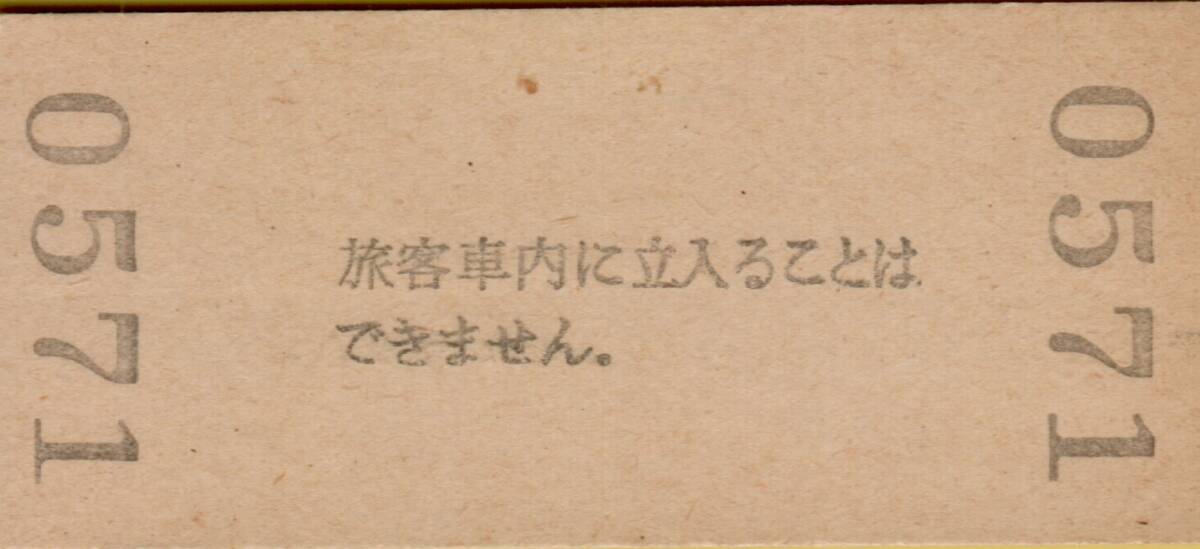 0571
旅客車内に立入ることは
できません。
0571